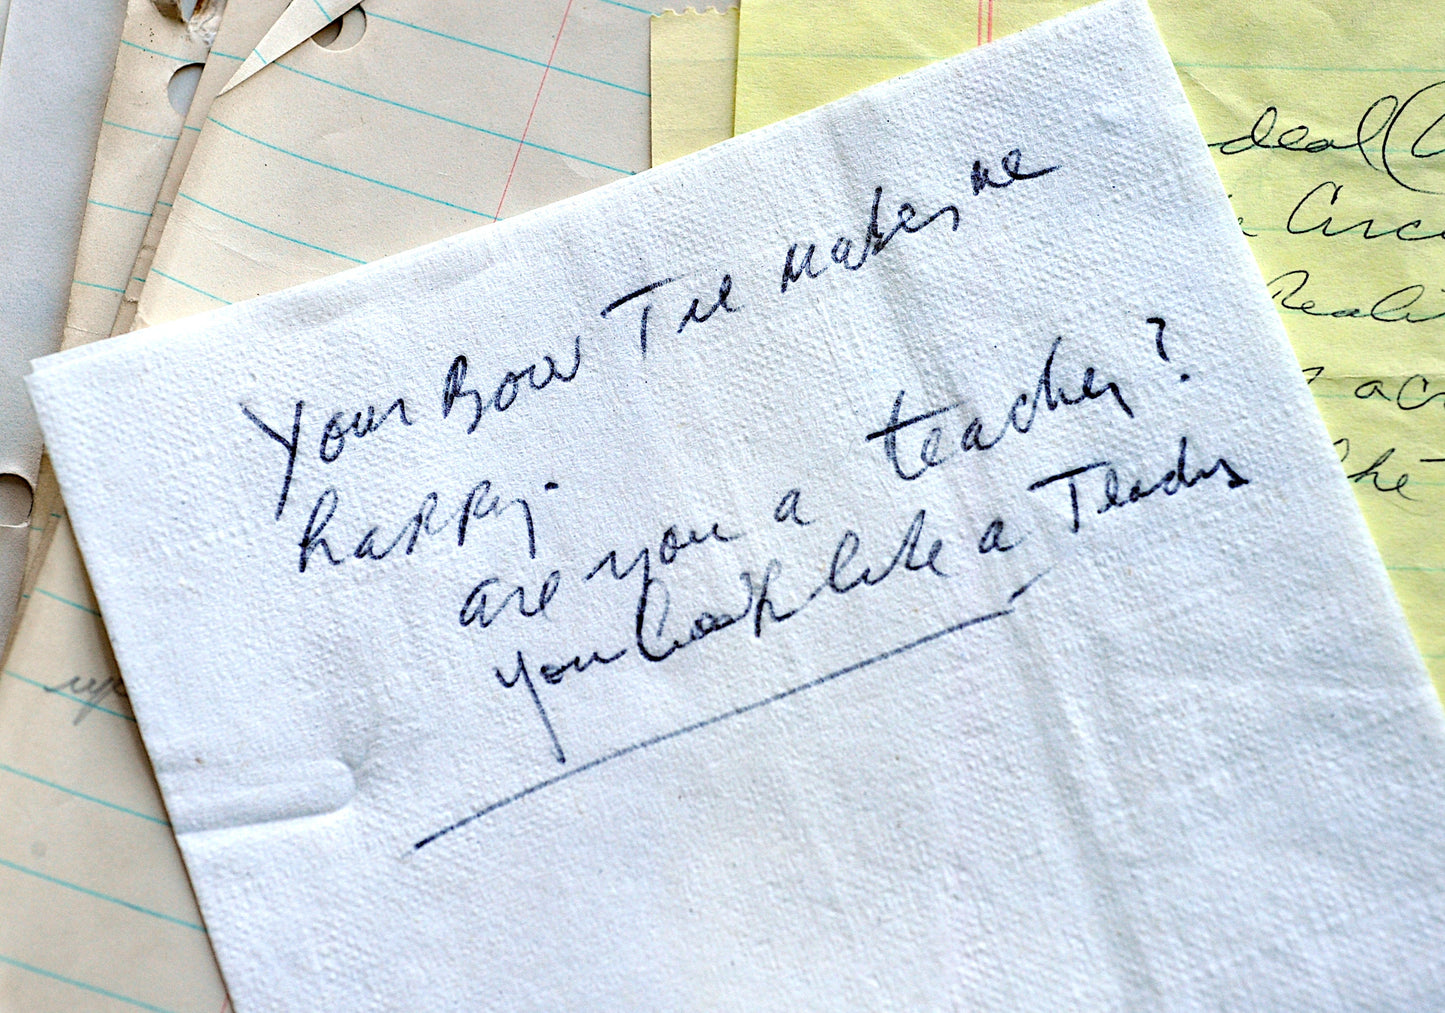 Your Bow Tie makes me
happy.
are you a teacher?
you look like a Teacher
deal
Circ
Reali